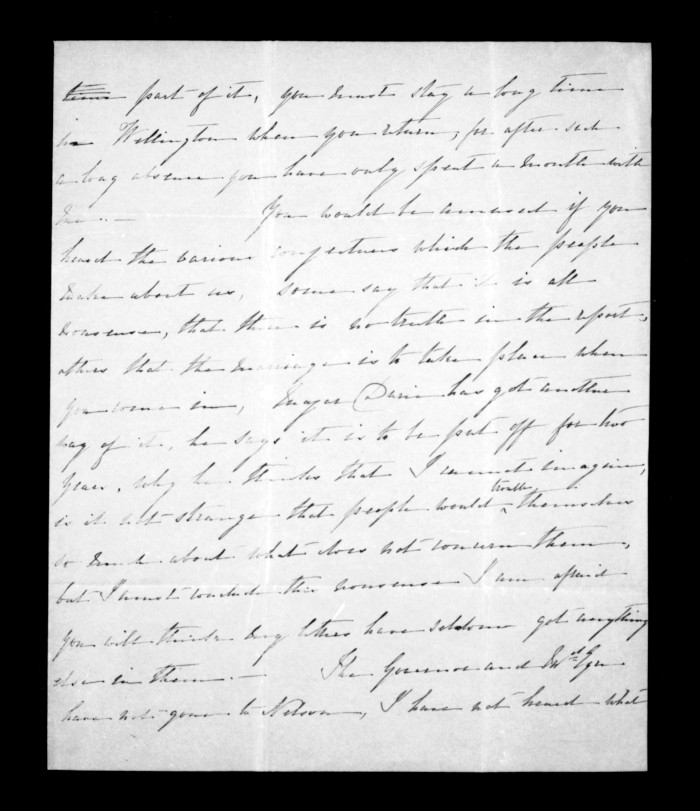 time part of it, you must stay a long time
in Wellington when you return, for after such
a long absence you have only spent a month with
me.. — You would be amused if you
heard the various conjectures which the people
make about us, some say that it is all
nonsense, that there is no truth in the report,
others that the marriage is to take place when
you come in, Major Durie has got another
way of it, he says it is to be put off for two
years, why he thinks that I cannot imagine,
is it not strange that people would trouble themselves
so much about what does not concern them,
but I must conclude this nonsense I am afraid
you will think my letters have seldom got anything
else in them. — The Governor and Mrs Eyre
have not gone to Nelson, I have not heard what